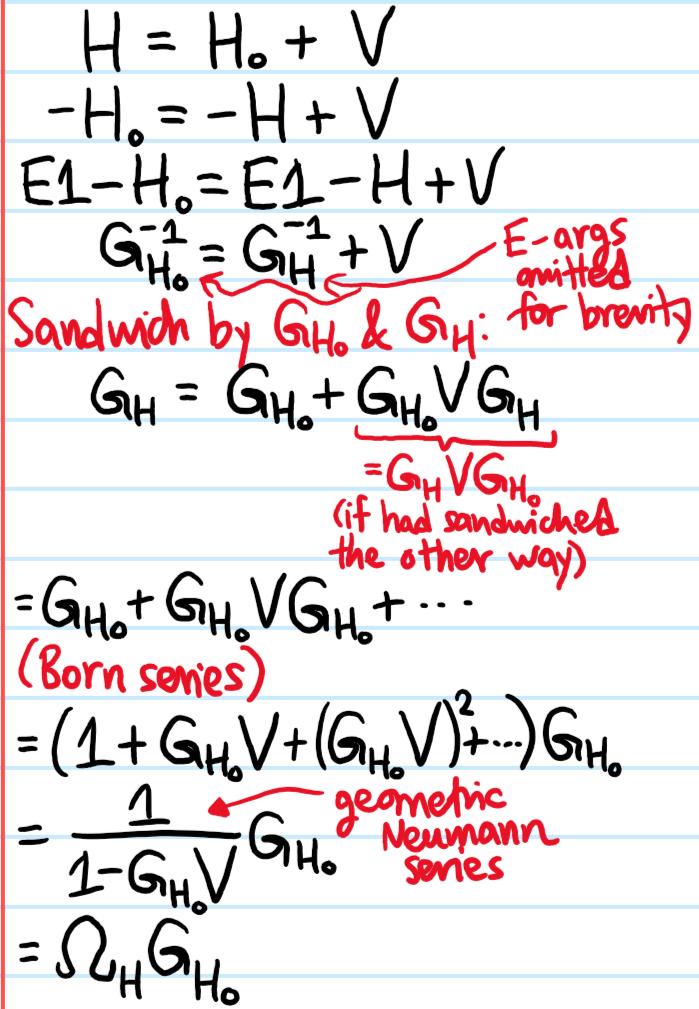 H = H₀ + V
-H₀ = -H + V
E1-H₀ = E1-H+V
G_{H₀}^{-1} = G_H^{-1} + V
E-args
omitted
for brevity
Sandwich by G_{H₀} & G_H:
G_H = G_{H₀} + G_{H₀}VG_H
=G_HVG_{H₀}
(if had sandwiched
the other way)
=G_{H₀}+G_{H₀}VG_{H₀}+...
(Born series)
=(1+G_{H₀}V+(G_{H₀}V)²+...)G_{H₀}
= \frac{1}{1-G_{H₀}V}G_{H₀}
geometric
Neumann
series
= Ω_HG_{H₀}